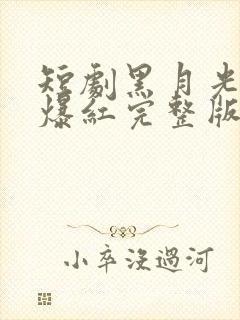 短劇黑月光
爆紅完整版
小卒沒過河